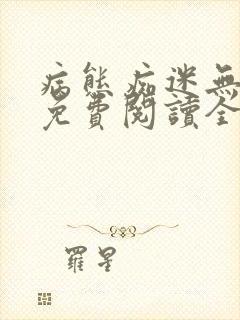 病態痴迷無
免費閱讀全
羅星